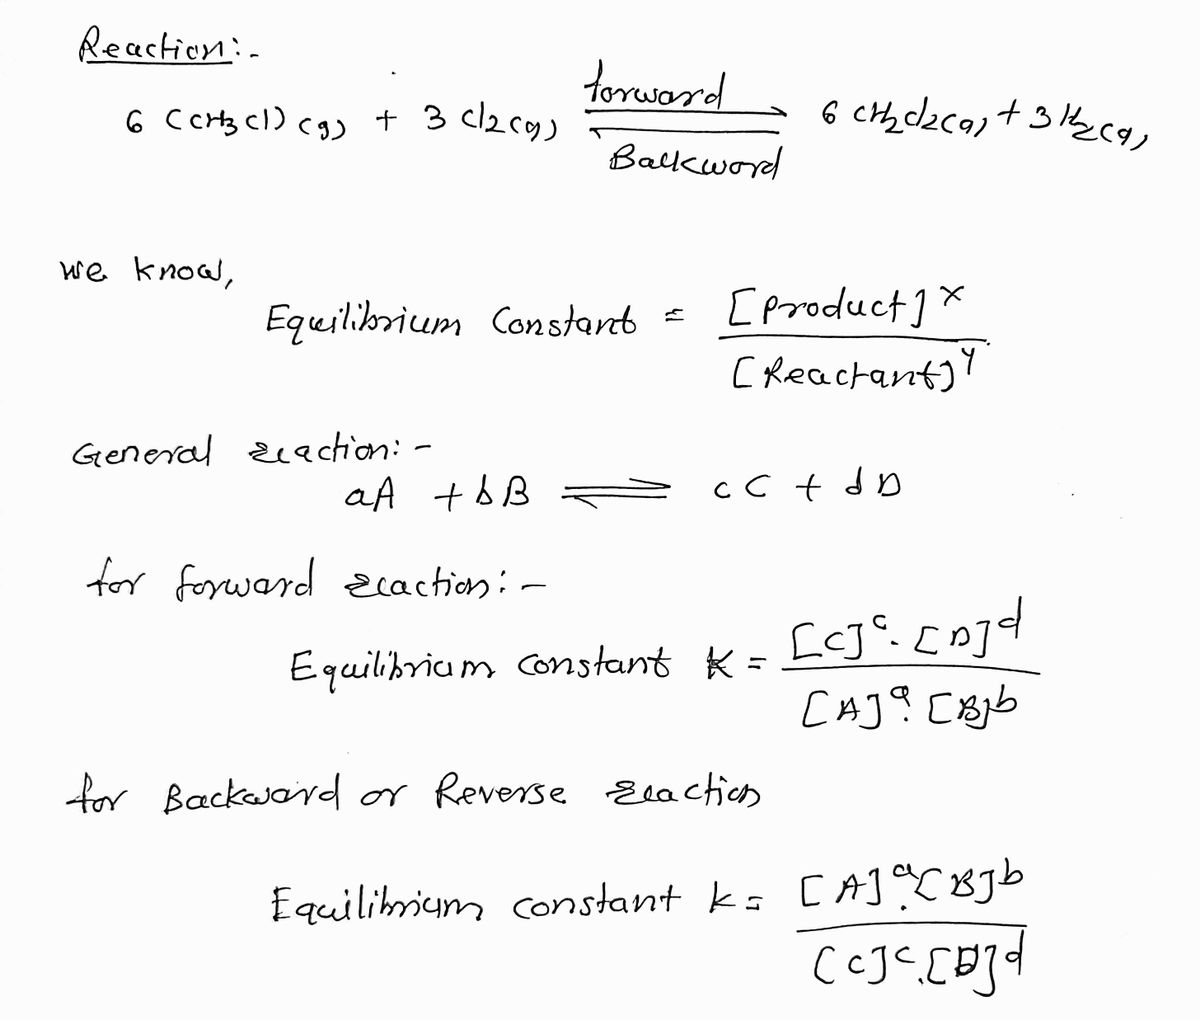 Reaction:-
6 (CH3Cl) (g) + 3 Cl2 (g) ⇌ 6 CH2Cl2(g) + 3 H2(g)
forward
Backword
we know,
Equilibrium Constant = [Product]^x / [Reactant]^y
General reaction:-
aA + bB ⇌ cC + dD
for forward reaction:-
Equilibrium constant K = [C]^c. [D]^d / [A]^a. [B]^b
for Backward or Reverse reaction
Equilibrium constant k = [A]^a.[B]^b / [C]^c.[D]^d